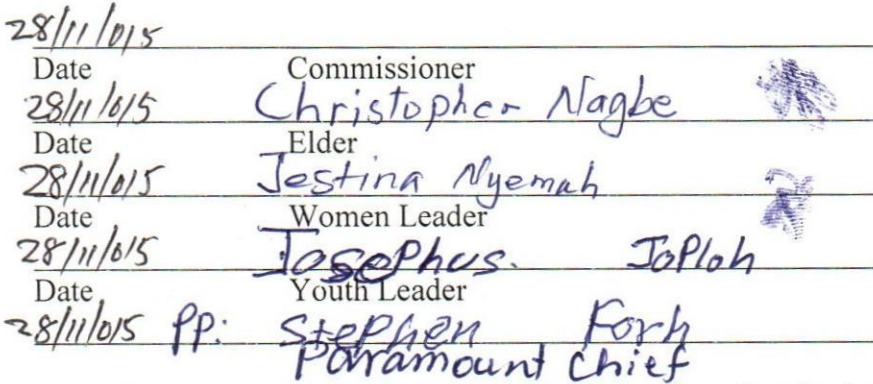 28/11/015
Date Commissioner
28/11/015 Christopher Nagbe
Date Elder
28/11/015 Jestina Nyemah
Date Women Leader
28/11/015 Josephus. JoPloh
Date Youth Leader
28/11/015 PP: Stephen Forh
Paramount Chief